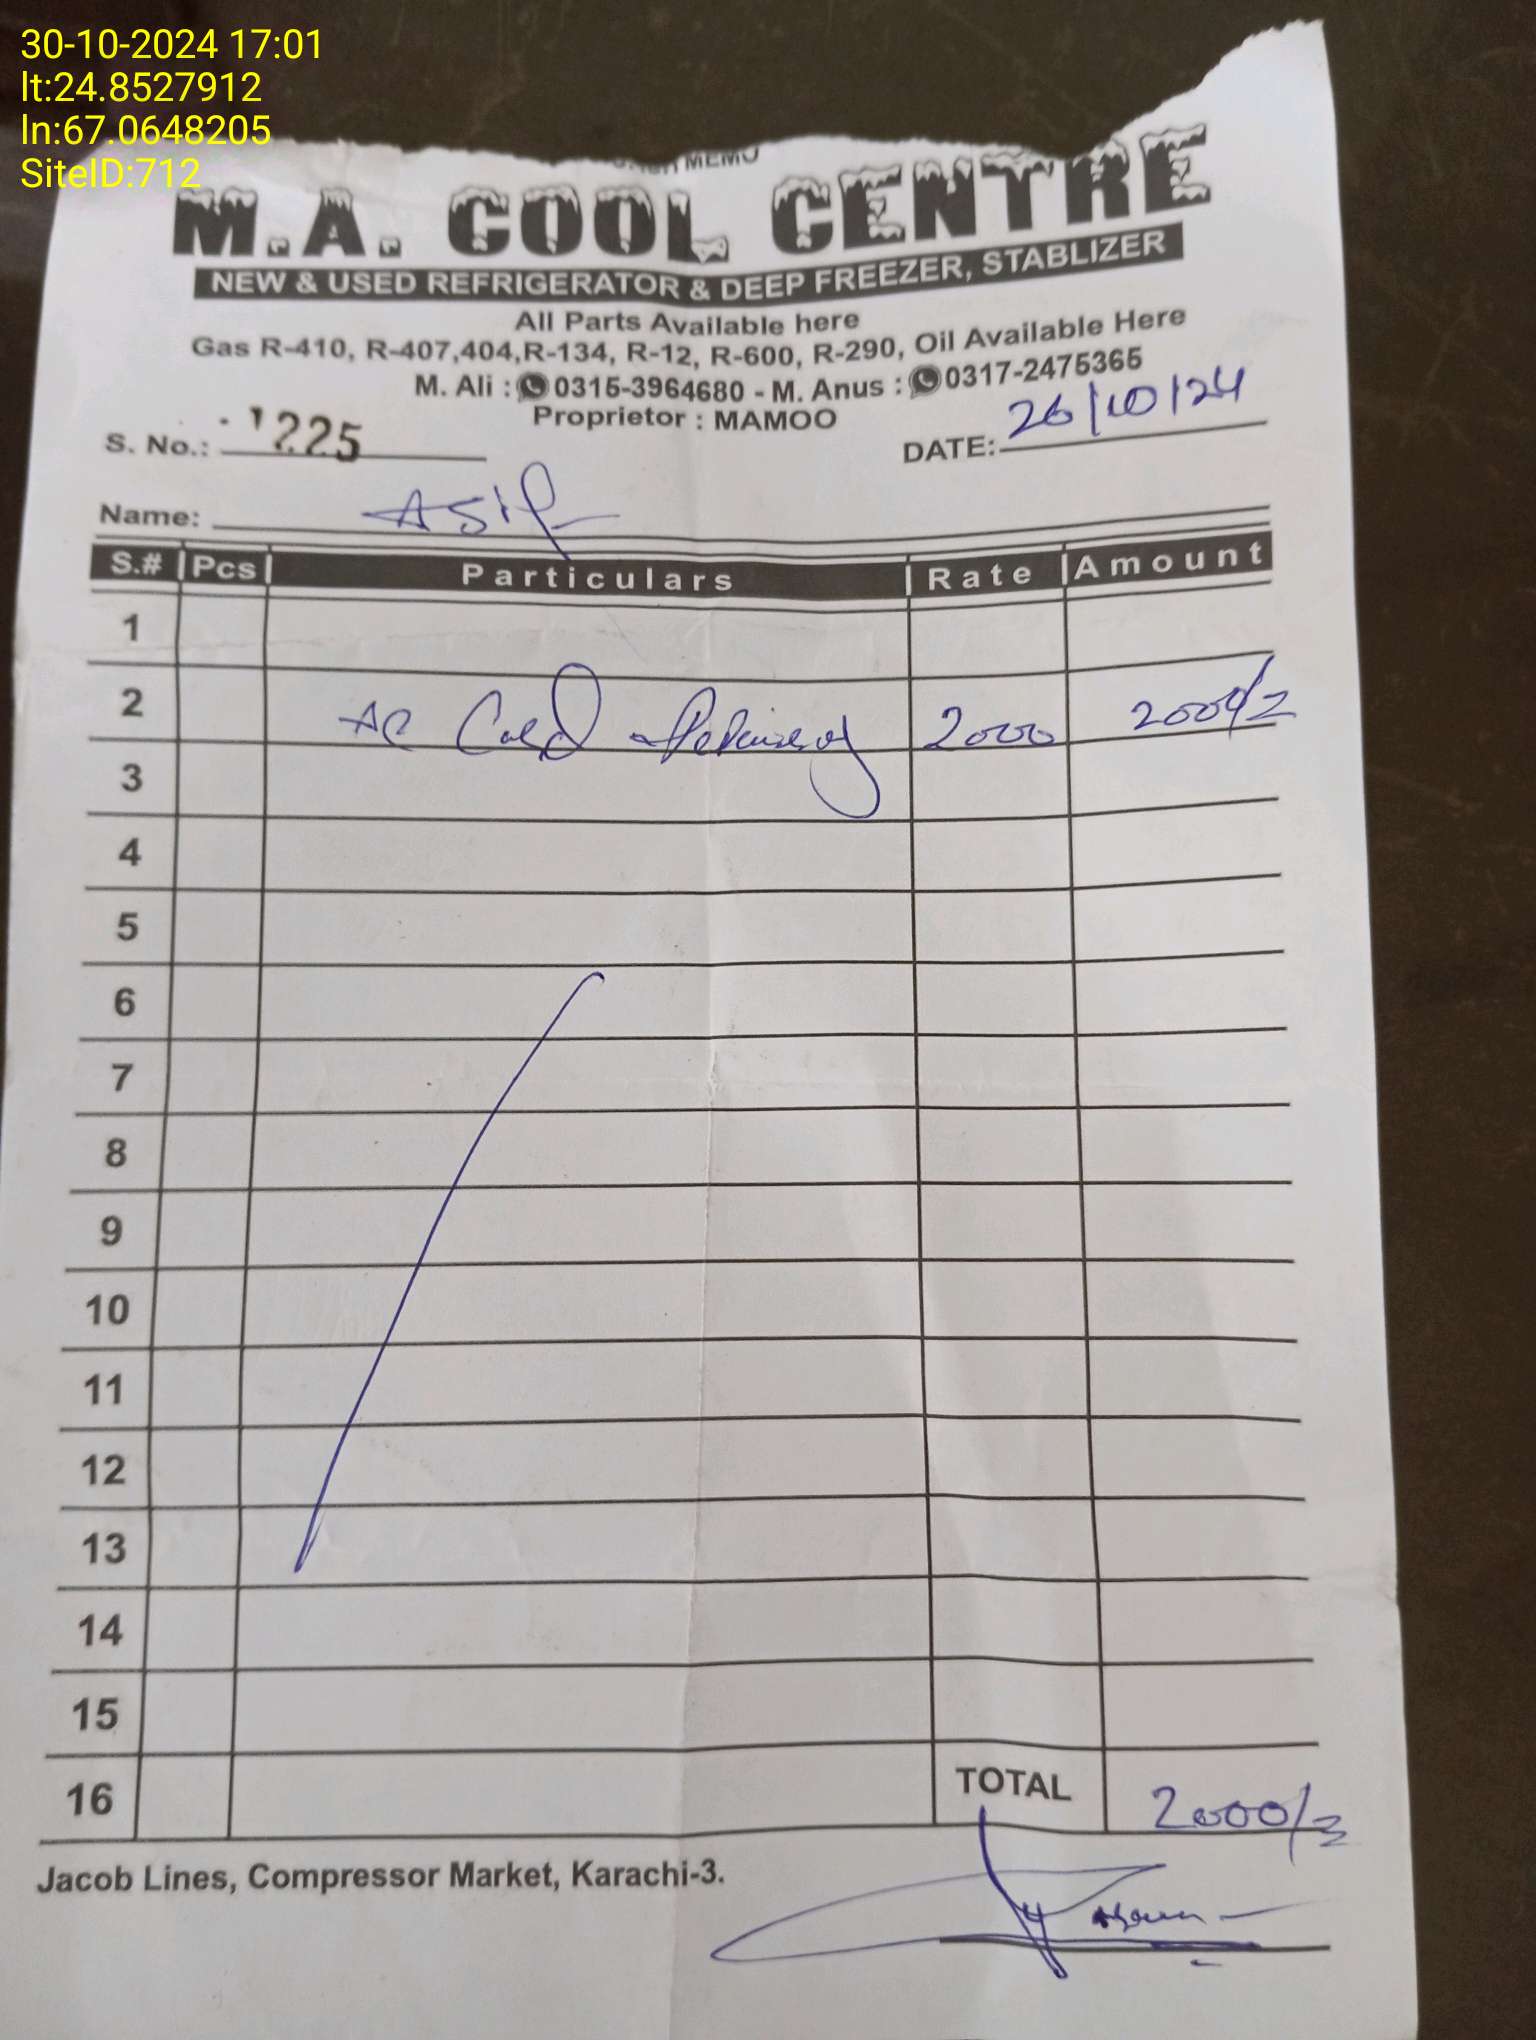 30-10-2024 17:01
lt:24.8527912
ln:67.0648205
SiteID:712
MEMO
M.A. COOL CENTRE
NEW & USED REFRIGERATOR & DEEP FREEZER, STABLIZER
All Parts Available here
Gas R-410, R-407,404,R-134, R-12, R-600, R-290, Oil Available Here
M. Ali : 0315-3964680 - M. Anus : 0317-2475365
Proprietor : MAMOO
S. No.: 1225 DATE: 26/10/24
Name: ASIF
S.# Pcs Particulars Rate Amount
1
2 AC Card 2000 2000/=
3
4
5
6
7
8
9
10
11
12
13
14
15
16 TOTAL 2000/=
Jacob Lines, Compressor Market, Karachi-3.